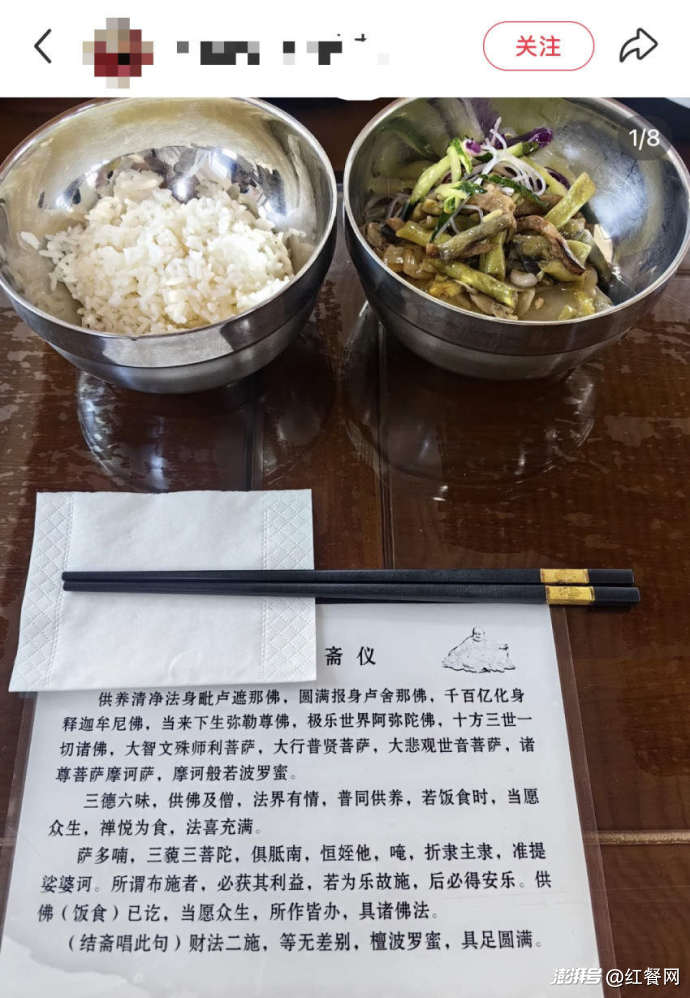 关注
1/8
斋仪
供养清净法身毗卢遮那佛，圆满报身卢舍那佛，千百亿化身
释迦牟尼佛，当来下生弥勒尊佛，极乐世界阿弥陀佛，十方三世一
切诸佛，大智文殊师利菩萨，大行普贤菩萨，大悲观世音菩萨，诸
尊菩萨摩诃萨，摩诃般若波罗蜜。
三德六味，供佛及僧，法界有情，普同供养，若饭食时，当愿
众生，禅悦为食，法喜充满。
萨多喃，三藐三菩陀，俱胝南，恒姪他，唵，折隶主隶，准提
娑婆诃。所谓布施者，必获其利益，若为乐故施，后必得安乐。供
佛（饭食）已讫，当愿众生，所作皆办，具诸佛法。
（结斋唱此句）财法二施，等无差别，檀波罗蜜，具足圆满。
澎湃号@红餐网